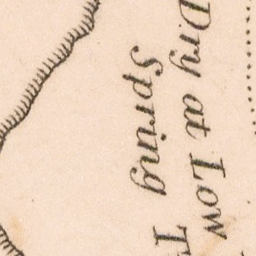 Dry at Low
Spring T